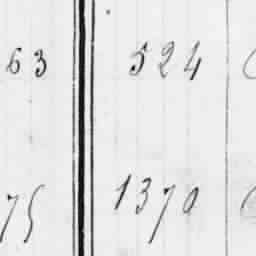 63 524
75 1370